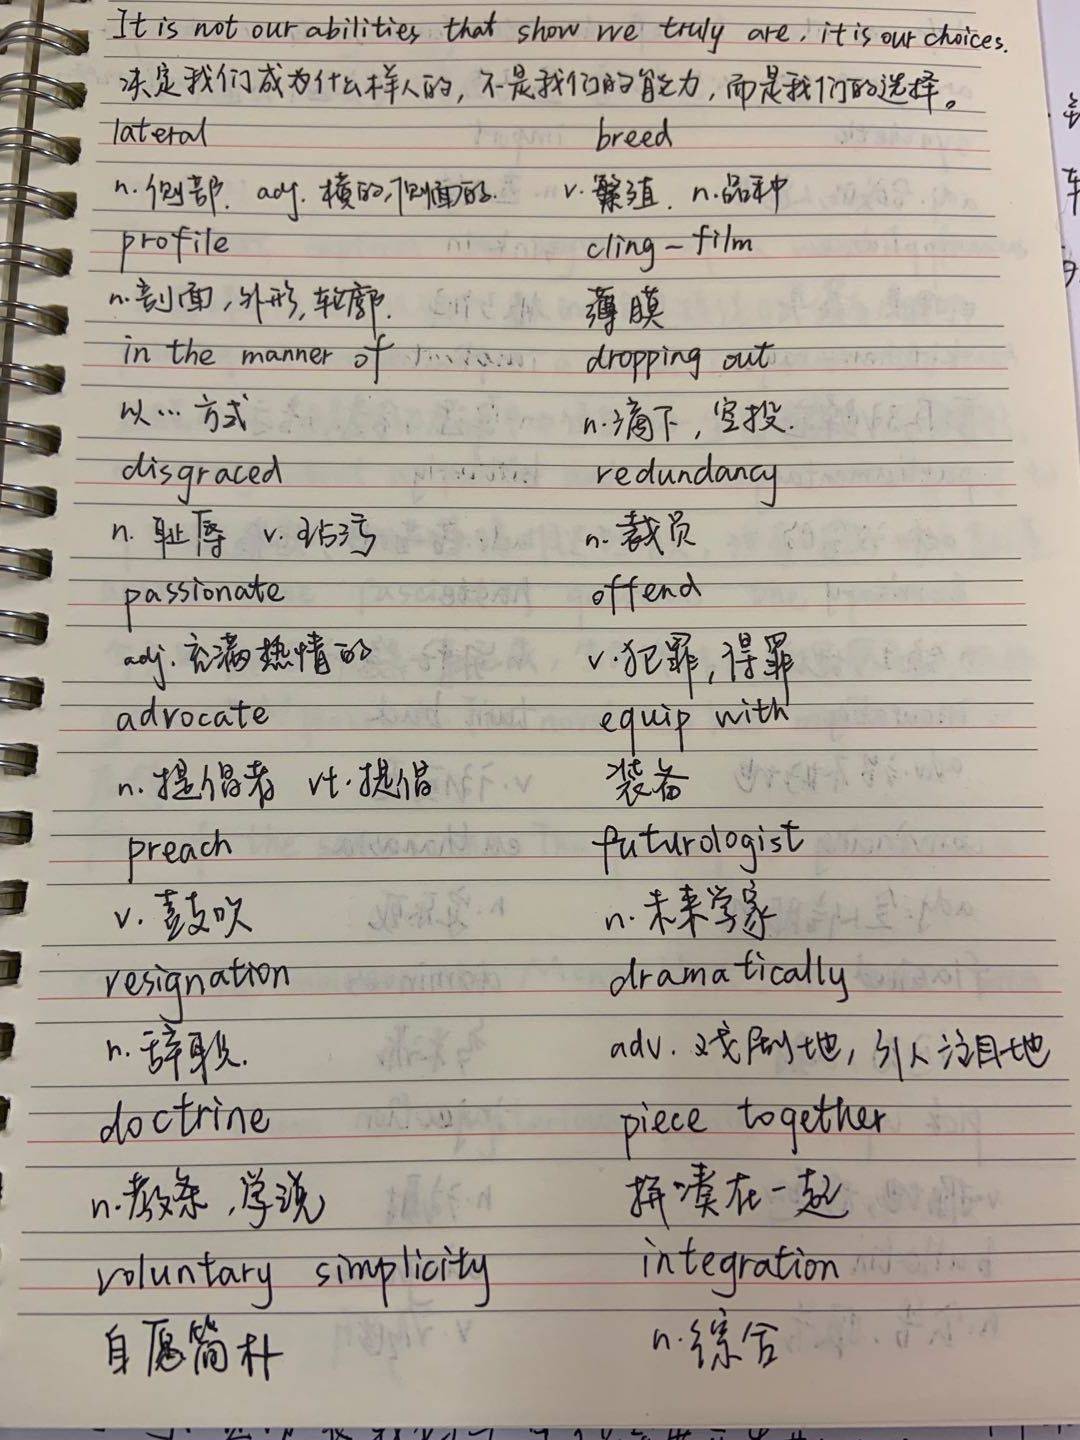 It is not our abilities that show we truly are, it is our choices.
决定我们成为什么样人的，不是我们的能力，而是我们的选择。
lateral breed
n.侧部. adj.横的,侧面的. v.繁殖. n.品种
profile cling-film
n.剖面,外形,轮廓. 薄膜
in the manner of dropping out
以…方式 n.滴下,空投.
disgraced redundancy
n.耻辱 v.玷污 n.裁员
passionate offend
adj.充满热情的 v.犯罪,得罪
advocate equip with
n.提倡者 vt.提倡 装备
preach futurologist
v.鼓吹 n.未来学家
resignation dramatically
n.辞职. adv.戏剧地,引人注目地
doctrine piece together
n.教条,学说 拼凑在一起
voluntary simplicity integration
自愿简朴 n.综合